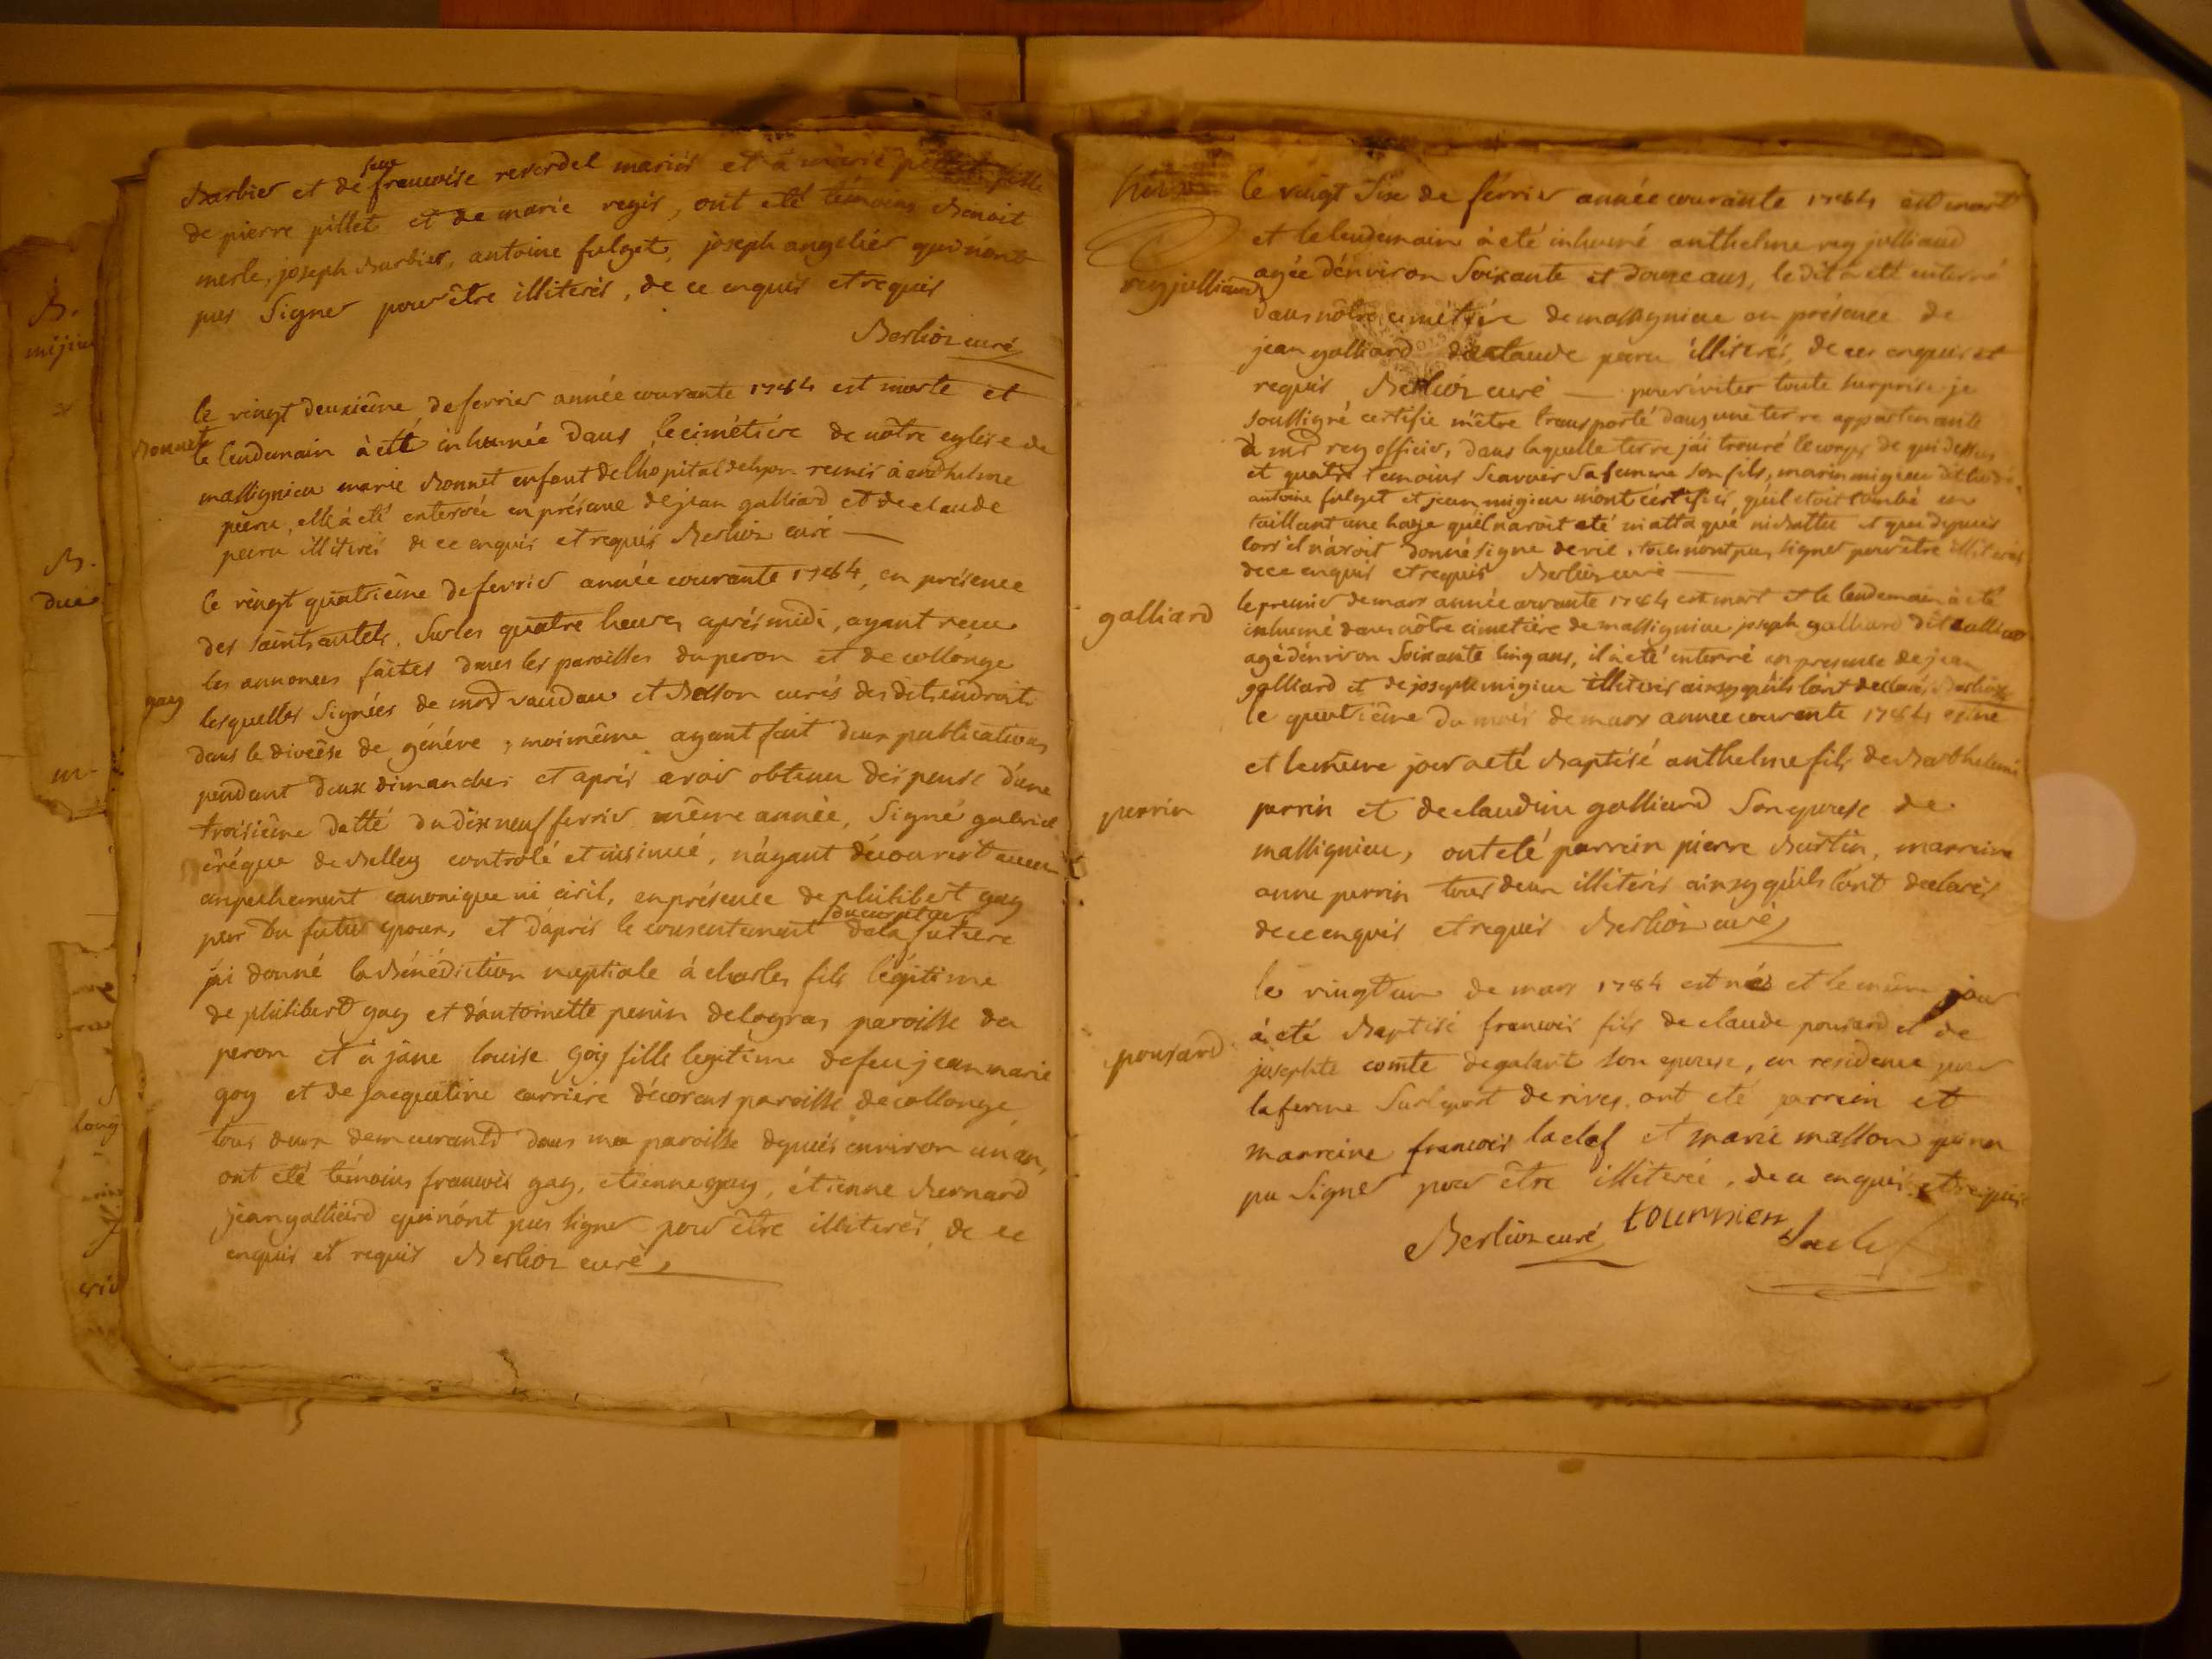 Barbier et de feue francoise reverdel mariés et à marie pillet fille
de pierre pillet et de marie regis, ont eté temoins Benoit
merle, joseph Barbier, antoine fulget, joseph angelier qui n'ont
pus signer pour être illiterés, de ce enquis et requis
Berlioz curé
Bonnet
le vingt deuxième de fevrier année courante 1784 est morte et
le lendemain à eté inhumée dans le cimétiére de nôtre eglise de
massignieu marie Bonnet enfant de lhopital de lyon remis à anthelme
peeru, elle à eté enterrée en présence de jean galliard et de claude
peeru illiterés de ce enquis et requis Berlioz curé
gay
le vingt quatrième de fevrier année courante 1784, en présence
des saints autels, sur les quatre heures aprés midi, ayant reçu
les annonces faites dans les paroisses du peron et de collonge
lesquelles signées de mrd vaudau et Besson curés des dits endroits
dans le diocèse de génève, moi même ayant fait deux publications
pendant deux dimanches et aprés avoir obtenu dispense d'une
troisième datté du dix neuf fevrier même année, signé gabriel
évéque de Belley controlé et insinué, n'ayant découvert aucun
enpechement canonique ni civil, en présence de philibert gay
per du futur epoux, et d'aprés le consentement du curateur de la future
j'ai donné la Bénédiction nuptiale à charles fils légitime
de philibert gay et d'antoinette penin de logras paroisse du
peron et à jane louise goy fille legitime de feu jean marie
goy et de jacqueline carriere d'écorans paroisse de collonge
tous deux demeurants dans ma paroisse depuis environ un an,
ont eté témoins francois gay, etienne gay, étienne Bernard
jean galliard qui n'ont pus signer pour être illiterés, de ce
enquis et requis Berlioz curé
rey julliand
le vingt six de fevrier année courante 1784 est mort
et le lendemain à eté inhumé anthelme rey julliand
agée d'environ soixante et douze ans, le dit à eté enterré
dans nôtre cimétiére de massignieu en présence de
jean galliard de claude peeru illiterés, de ce enquis et
requis Berlioz curé — pour éviter toute surprise je
soussigné certifie m'être transporté dans une terre appartenante
à mr rey officier, dans laquelle terre j'ai trouvé le corps de qui dessus
et quatre temoins scavoir sa femme son fils, marin migieu dit
antoine fulget et jean migieu m'ont certifiés, qu'il etoit tombé en
taillant une haye qu'il n'avoit eté ni attaqué ni Battu et que depuis
lors il n'avoit donné signe de vie, tous n'ont pus signer pour être illiterés
de ce enquis et requis Berlioz curé
galliard
le premier de mars année courante 1784 est mort et le lendemain à eté
inhumé dans nôtre cimetiére de massignieu joseph galliard dit
agé d'environ soixante cinq ans, il à eté enterré en presence de jean
galliard et de joseph migieu illiterés ainsy qu'ils l'ont declarés Berlioz
perrin
le quatrième du mois de mars annee courante 1784 est né
et le même jour a eté Baptisé anthelme fils de Barthelemi
perrin et de claudine galliard son epouse de
massignieu, ont eté parrein pierre Martin, marreine
anne perrin tous deux illiterés ainsy qu'ils l'ont declarés
de ce enquis et requis Berlioz curé
pousard
le vingt un de mars 1784 est nés et le même jour
à eté Baptisé francois fils de claude pousard et de
josephte comte de galant son epouse, en residence pour
la ferme sur le port de rives, ont eté parrein et
marreine francois laclef et marie masson qui n'a
pu signer pour être illiterée, de ce enquis et requis
Berlioz curé tournier Laclef